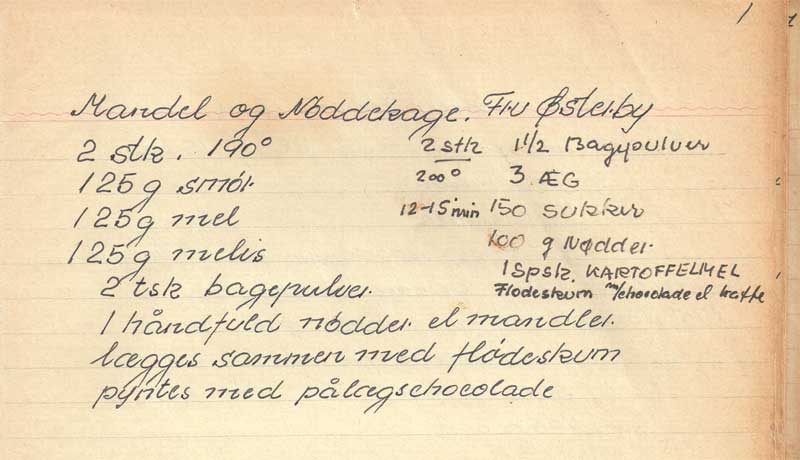 1
Mandel og Nøddekage. Fru Østerby
2 stk. 190°
125 g smør
125 g mel
125 g melis
2 tsk bagepulver
1 håndfuld nødder el mandler
lægges sammen med flødeskum
pyntes med pålægschocolade
2 stk 1 1/2 Bagepulver
200° 3 ÆG
12-15 min 150 sukker
100 g Nødder
1 Spsk. KARTOFFELMEL
Flødeskum m/chocolade el kaffe